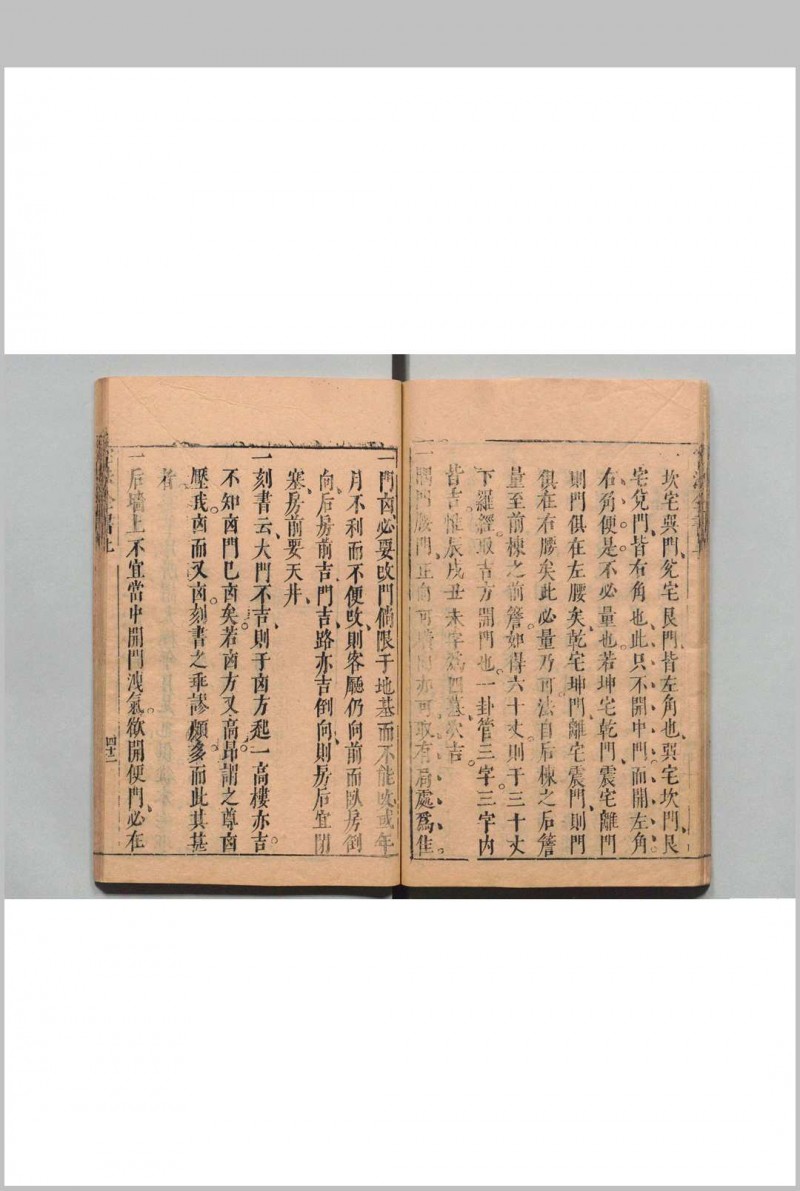 坎宅巽門、兊宅艮門、皆左角也、巽宅坎門、艮
宅兊門、皆右角也、此只不開中門而開左角、
右角便是。不必量也。若坤宅乾門、震宅離門
則門俱在左腰矣、乾宅坤門、離宅震門、則門
俱在右腰矣此必量乃可法自后棟之后簷
量至前棟之前簷。如得六十丈、則于三十丈
下羅經。取吉方開門也。一卦管三字。三字内
皆吉、惟辰戌丑未字爲四墓次吉。
一偶門腰門、正向可 向亦可取有肩處爲佳。
一門卤必要攺門倘限于地基而不能攺或年
月不利而不便攺、則客廳仍向前而臥房倒
向、后房前吉門吉、路亦吉倒向、則房后宜閉
塞、房前要天井、
一刻書云、大門不吉、則于卤方起一高樓亦吉
不知卤門巳卤矣。若卤方又高昂謂之尊卤
壓我。卤而又卤。刻書之乖謬頗多而此其甚
者。
一后墻上不宜當中開門洩氣。欲開便門、必在
全書上
四十二